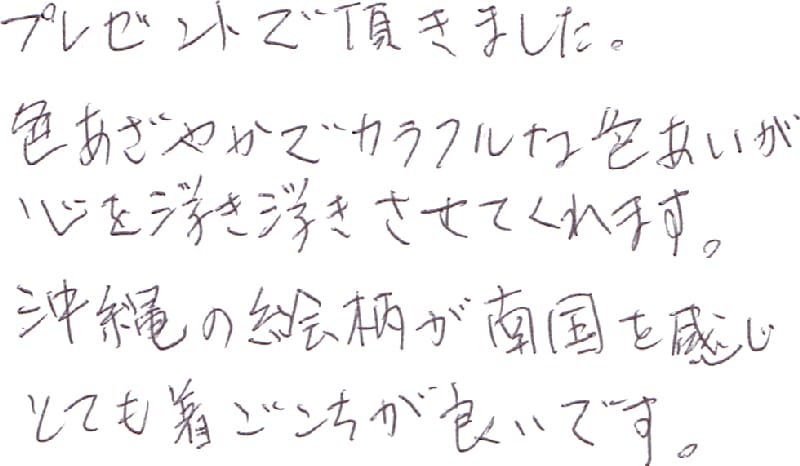 プレゼントで頂きました。
色あざやかでカラフルな色あいが
心を浮き浮きさせてくれます。
沖縄の絵柄が南国を感じ
とても着ごこちが良いです。